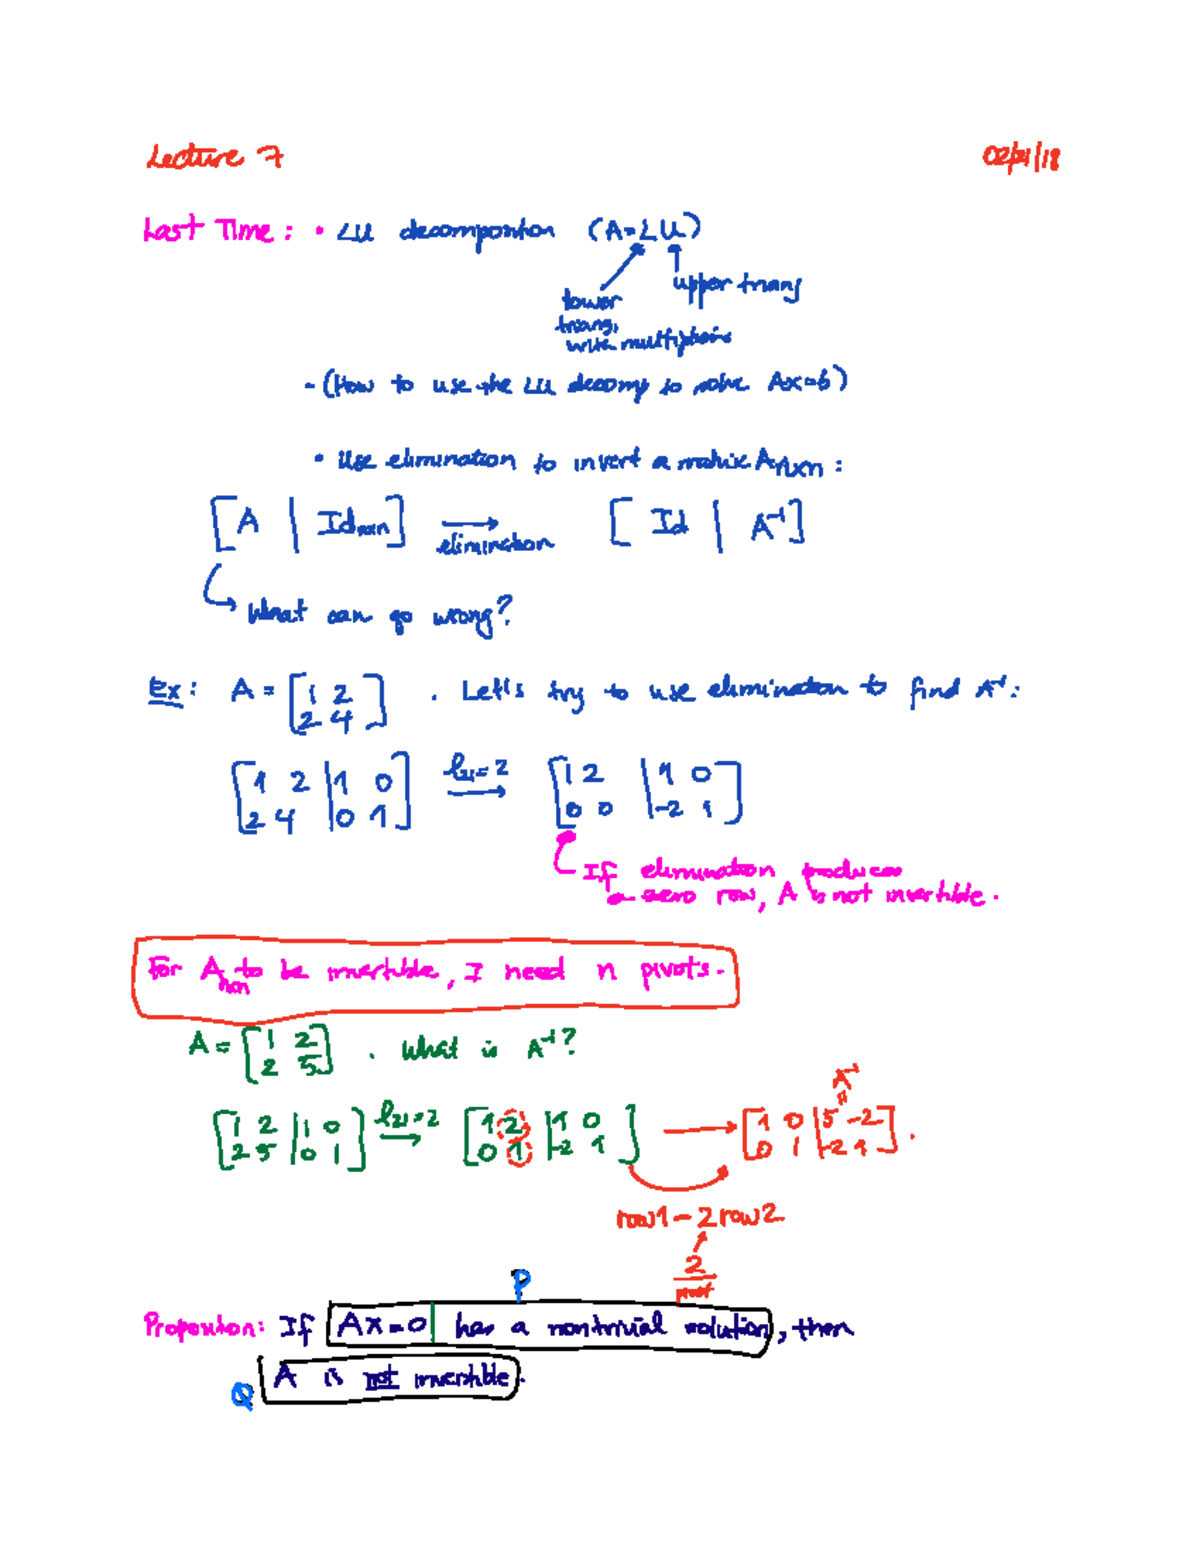 Lecture 7 02/21/18
Last Time: • LU decomposition (A=LU)
upper triang
lower
triang.
with multipliers
- (How to use the LU decomp to solve Ax=b)
• Use elimination to invert a matrix Anxn:
[A | Idnxn] → elimination [Id | A⁻¹]
What can go wrong?
Ex: A = [1 2; 2 4]. Let's try to use elimination to find A⁻¹:
[1 2 | 1 0; 2 4 | 0 1] l21=2 → [1 2 | 1 0; 0 0 | -2 1]
If elimination produces
a zero row, A is not invertible.
For Anxn to be invertible, I need n pivots.
A = [1 2; 2 5]. What is A⁻¹?
A⁻¹
[1 2 | 1 0; 2 5 | 0 1] l21=2 → [1 2 | 1 0; 0 1 | -2 1] → [1 0 | 5 -2; 0 1 | -2 1].
row1 - 2row2
2
pivot
P
Proposition: If Ax=0 has a nontrivial solution, then
Q A is not invertible.